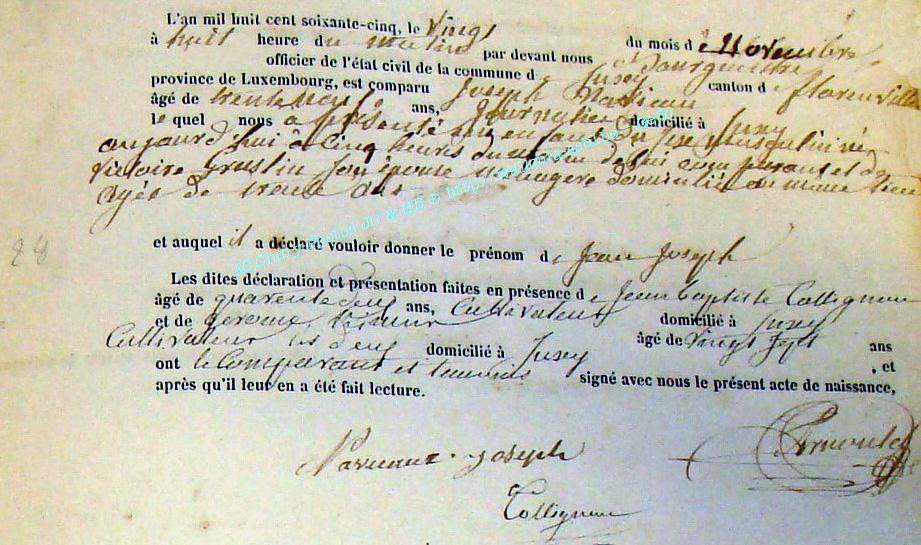 L'an mil huit cent soixante-cinq, le Vingt du mois de Novembre
à huit heure du matin par devant nous Bourguestre
officier de l'état civil de la commune de Jusey canton de Florenville
province de Luxembourg, est comparu Joseph
âgé de trente neuf ans, Journalier domicilié à Jusey
le quel nous a présenté un enfant du sexe masculin né
aujourd'hui à cinq heures du matin de lui comparant et de
victoire son épouse ménagère domiciliée au même lieu
agée de trente ans
28
et auquel il a déclaré vouloir donner le prénom de Jean Joseph
Les dites déclaration et présentation faites en présence de Jean baptiste Collignon
âgé de quarente deux ans, Cultivateur domicilié à Jusey
et de gérome âgé de Vingt sept ans
Cultivateur les deux domicilié à Jusey , et
ont le Comparant et temoins signé avec nous le présent acte de naissance,
après qu'il leur en a été fait lecture.
Joseph
Collignon